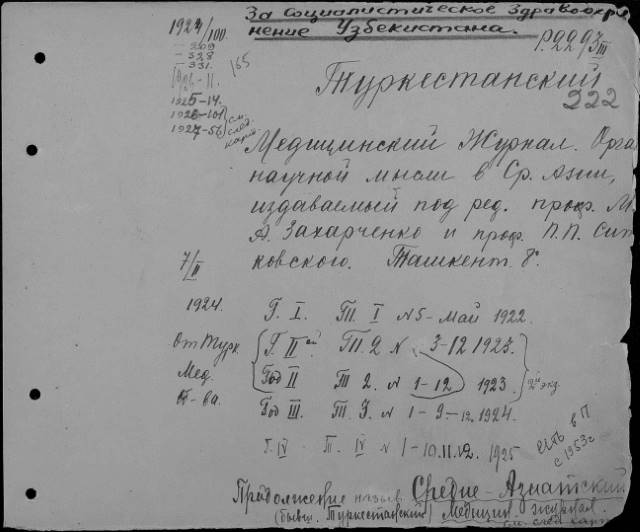 За социалистическое здравоохра-
нение Узбекистана.
1924/100.
— 209
— 328
— 331.
1926-11.
165
1925-14.
1926-101
1927-56
см.
след.
карт.
Р.2293/III
Туркестанский
222
Медицинский Журнал. Орга
научной мысли в Ср. Азии,
издаваемый под ред. проф. М.
А. Захарченко и проф. П.П. Сит
ковского. Ташкент. 8°.
7/II
1924.
От Турк.
Мед.
О-ва.
Г. I. Т. I № 5 - май 1922.
Г. II ой Т. 2 № 3-12 1923.
Год II Т 2. № 1-12 1923.
2й экз.
Год III. Т. 3. № 1 - 9 - 12. 1924.
Г. IV Т. IV № 1 - 10.11.12. 1925
есть в П
с 1953г
Продолжение назыв. Средне-Азиатский
(бывш. Туркестанский) Медицин. журнал.
см. след. карт.